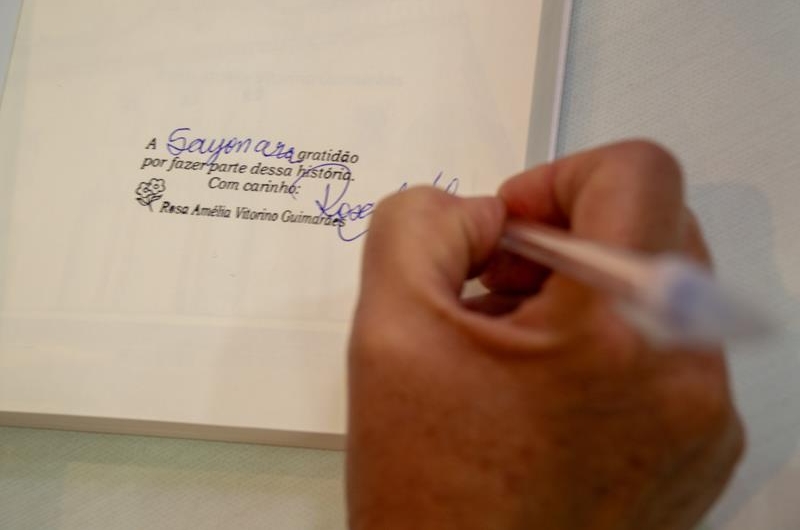 A Sayonara gratidão
por fazer parte dessa história.
Com carinho:
Rosa Amélia Vitorino Guimarães